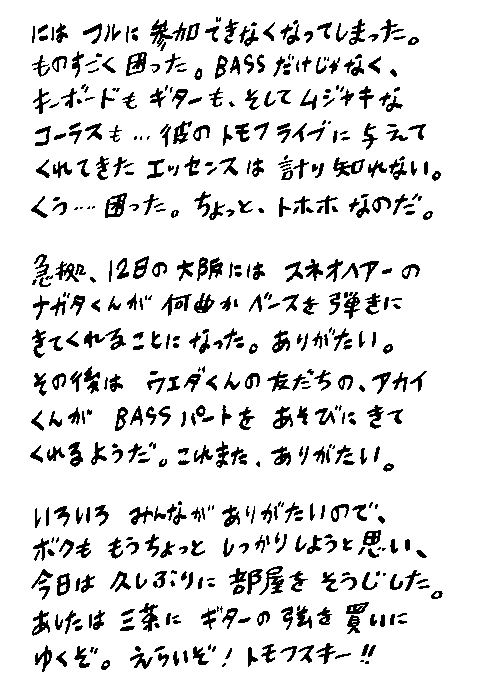 には フルに 参加できなくなってしまった。
ものすごく困った。BASSだけじゃなく、
キーボードも ギターも、そして ムジャキな
コーラスも… 彼の トモフライブに 与えて
くれてきた エッセンスは 計り知れない。
くぅ…. 困った。ちょっと、トホホ なのだ。
急拠、12日の大阪には スネオヘアーの
ナガタくんが 何曲か ベースを 弾きに
きてくれることに なった。ありがたい。
その後は ウエダくんの友だちの、アカイ
くんが BASSパートを あそびに きて
くれるようだ。これまた、ありがたい。
いろいろ みんなが ありがたいので、
ボクも もうちょっと しっかりしようと思い、
今日は 久しぶりに 部屋を そうじした。
あしたは 三条に ギターの 弦を 買いに
ゆくぞ。えらいぞ! トモフスキー!!